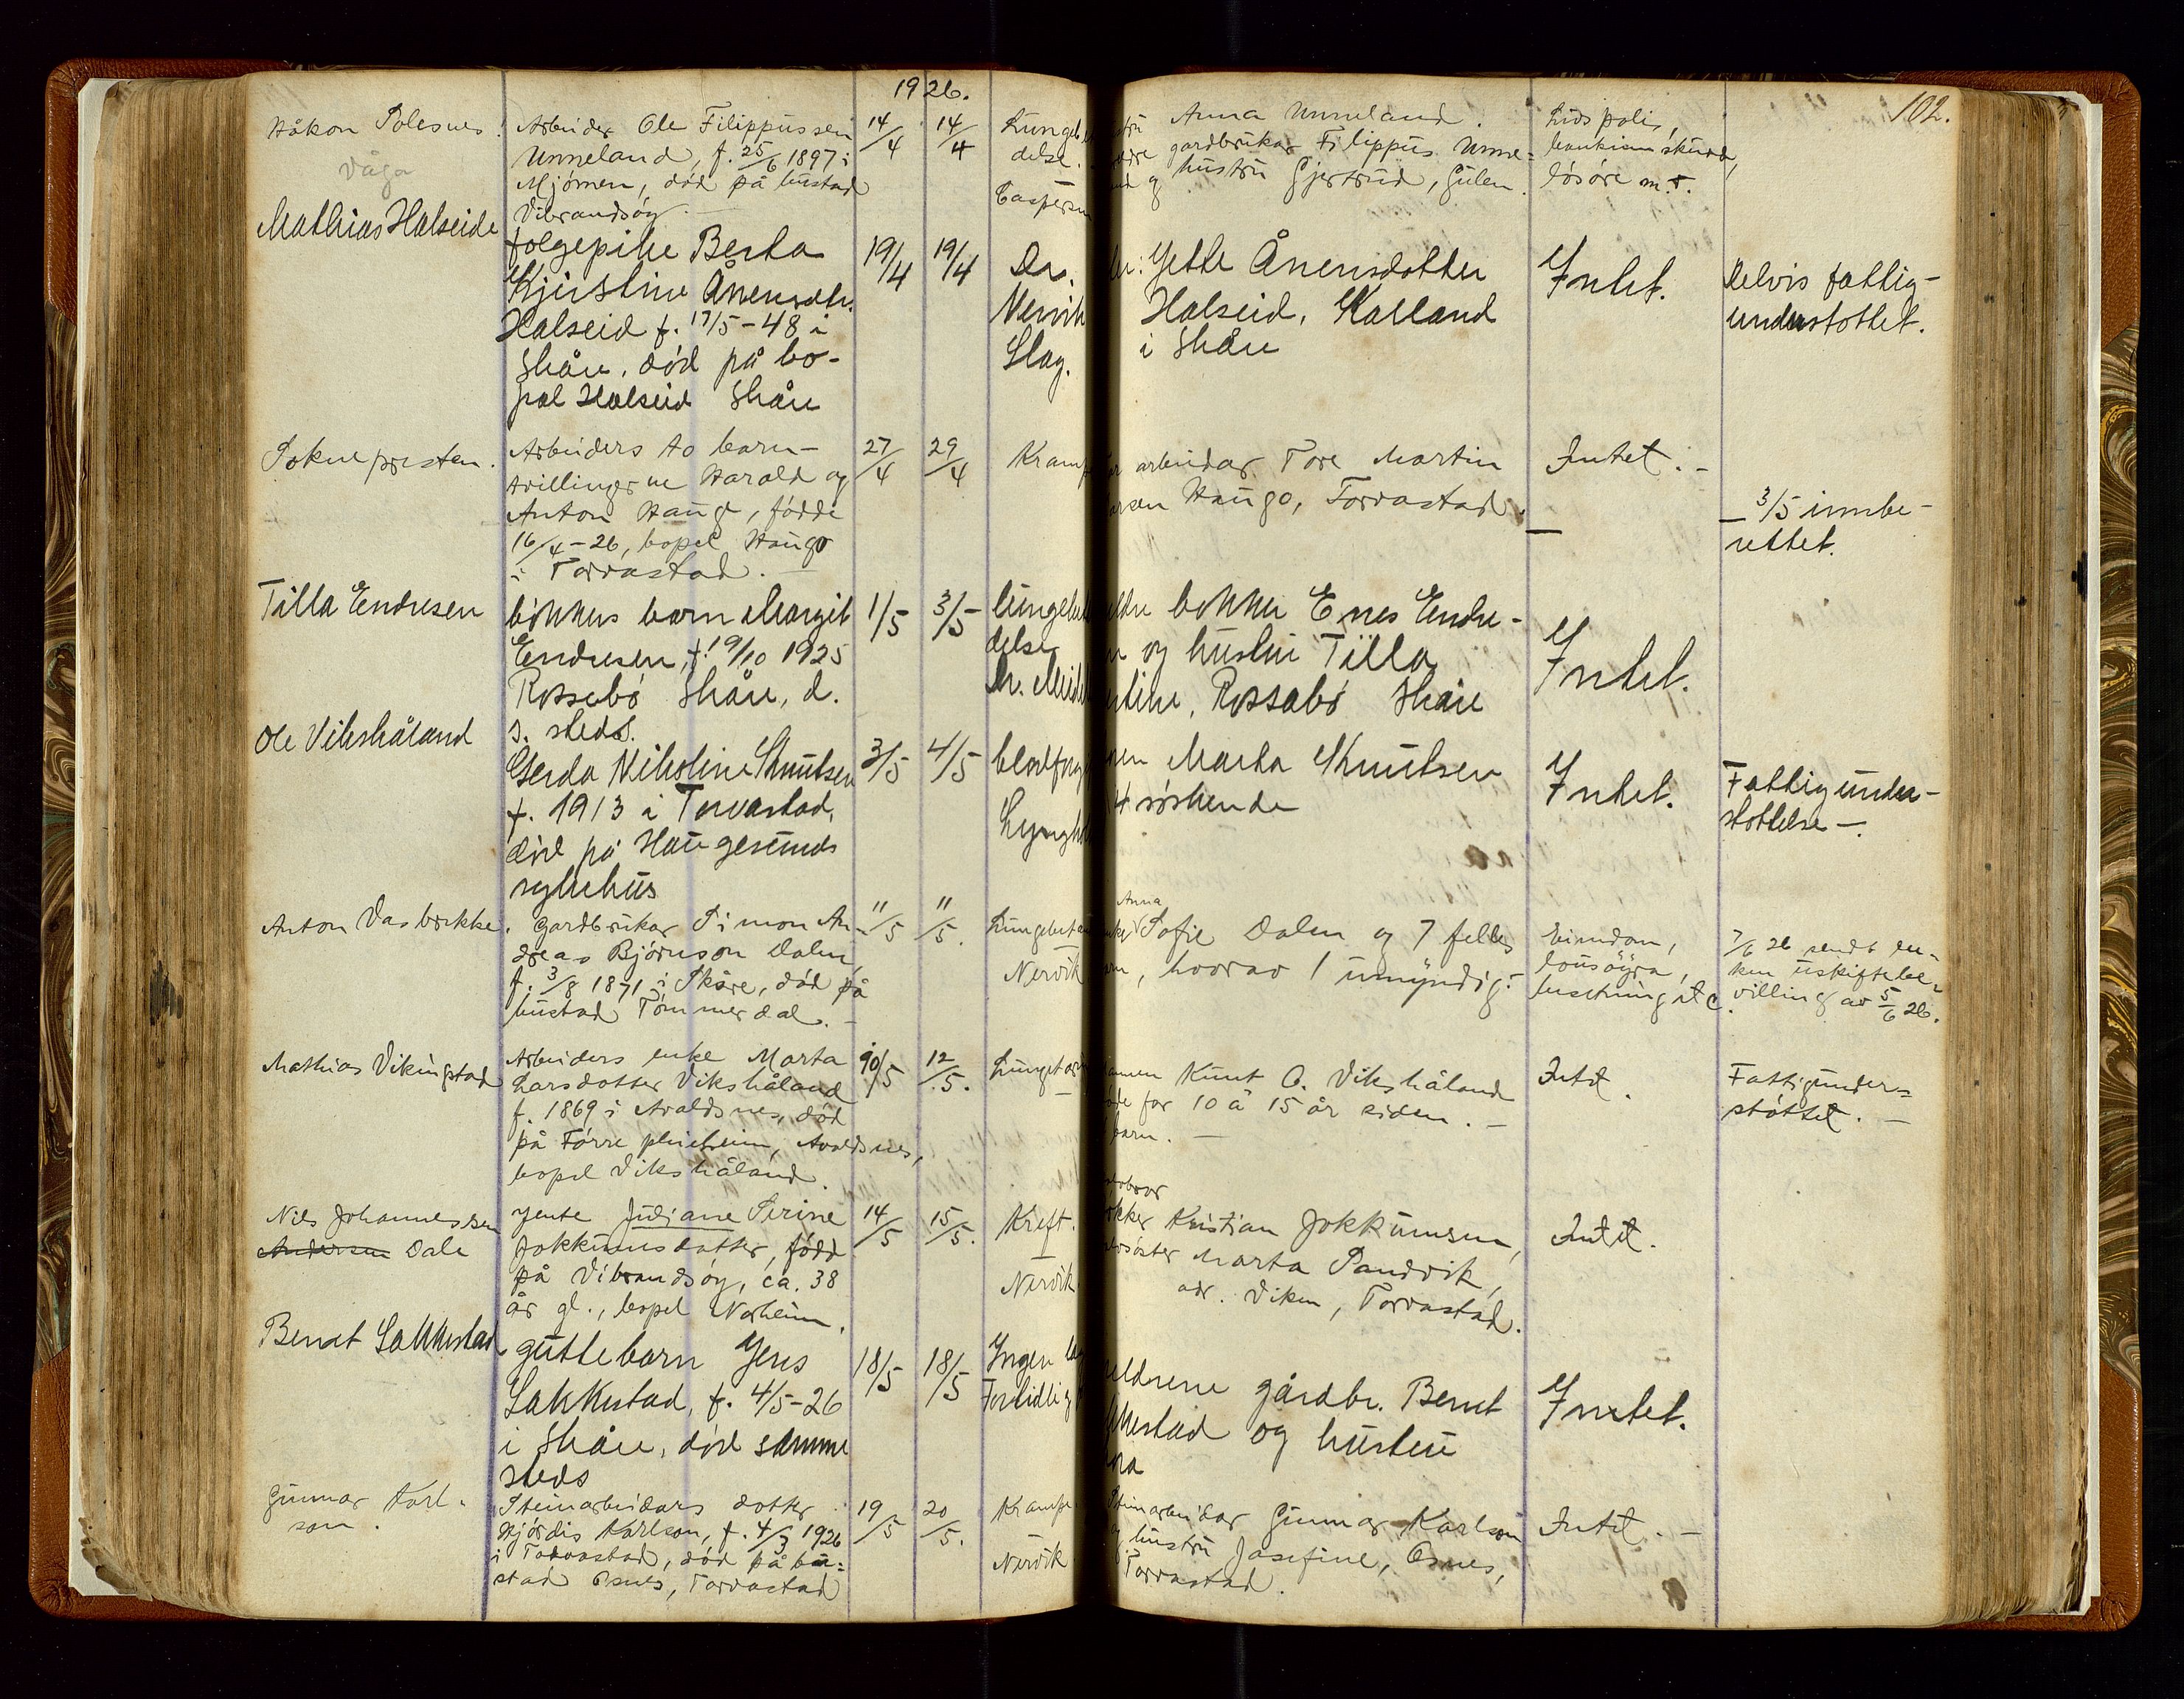 1926.
102.
Håkon Solesnes.
Våga
Arbeider Ole Filippussen
Unneland, f. 25/6 1897 i
Mjömen, död på bustad
Vibrandsöy. —
14/4
14/4
Lungebe
delse.
Caspersen
Anna Unneland.
gardbrukar Filippus Unne=
og hustru Gjertrud, Gulen.
Livspolis,
lösöre m.v.
Mathias Halseide
følgepike Berta
Kjirstine Ånensdtr.
Halseid f. 17/5-48 i
Skåre, død på bo-
pæl Halseid Skåre
19/4
19/4
Dr.
Nervik
Slag.
Jette Ånensdotter
Halseid, Karland
i Skåre
Intet.
Delvis fattig-
understøttet.
Soknepresten.
Arbeiders to barn—
tvillingerne Harald og
Anton Hauge, födde
16/4-26, bopel Haugo
i Torvastad. —
27/4
29/4
Kramp
arbeidar Tore Martin
Haugo, Torvastad.
Intet. —
— 3/5 innbe-
rettet.
Tilla Endresen
bøkkers barn Margit
Endresen, f. 19/10 1925
Rossebø Skåre, d.
s. steds.
1/5
3/5
lungebe
delse
bøkker Enes Endre-
og hustru Tilla
Rossabø Skåre
Intet.
Ole Vikshåland
Gerda Nikoline Knutsen
f. 1913 i Torvastad,
død på Haugesunds
sykehus
3/5
4/5
blodforg
Lyngh
Marta Knutsen
4 søskende
Intet.
Fattigunder-
støttelse —.
Anton Vasbrekke.
Gardbrukar Simon An-
dreas Björnson Dalen,
f. 3/8 1871 i Skåre, död på
bustad Tömmerdal. —
11/5
11/5.
Lungebet
Nervik
Anna
Sofie Dalen og 7 felles
, hvorav 1 umyndig.
Eiendom,
lausöyra,
buskning etc.
7/6 26 sendt en-
ken uskiftebe-
villing av 5/6 26.
Mathias Vikingstad
Arbeiders enke Marta
Larsdotter Vikshåland
f. 1869 i Avaldsnes, död
på Förre pleieheim, Avaldsnes,
bopel Vikshåland.
10/5
12/5.
Kunut O. Vikshåland
for 10 à 15 år siden. —
barn. —
Intet.
Fattigunder=
støttet. —
Nils Johannessen
Andersen Dale
Jente Juliane Serine
Jokkumsdotter, född
på Vibrandsöy, ca. 38
år gl., bopel Norheim.
14/5
15/5.
Kreft.
Nervik
Kristian Jokkumsen,
Marta Sandvik,
adr. Viken, Torvastad.
Intet.
Berent Sakkestad
guttebarn Jens
Sakkestad, f. 4/5-26
i Skåre, død samme
steds
18/5
18/5
Ingen
Fortidlig
gårdbr. Bernt
og hustru
Intet.
Gunnar Karl-
son.
Steinarbeidars dotter
Hjördis Karlson, f. 4/3 1926
i Torvastad, död på bu=
stad Osnes, Torvastad
19/5
20/5.
Krampe
Nervik
Steinarbeidar Gunnar Karlson
og hustru Josefine, Osnes,
Torvastad.
Intet. —